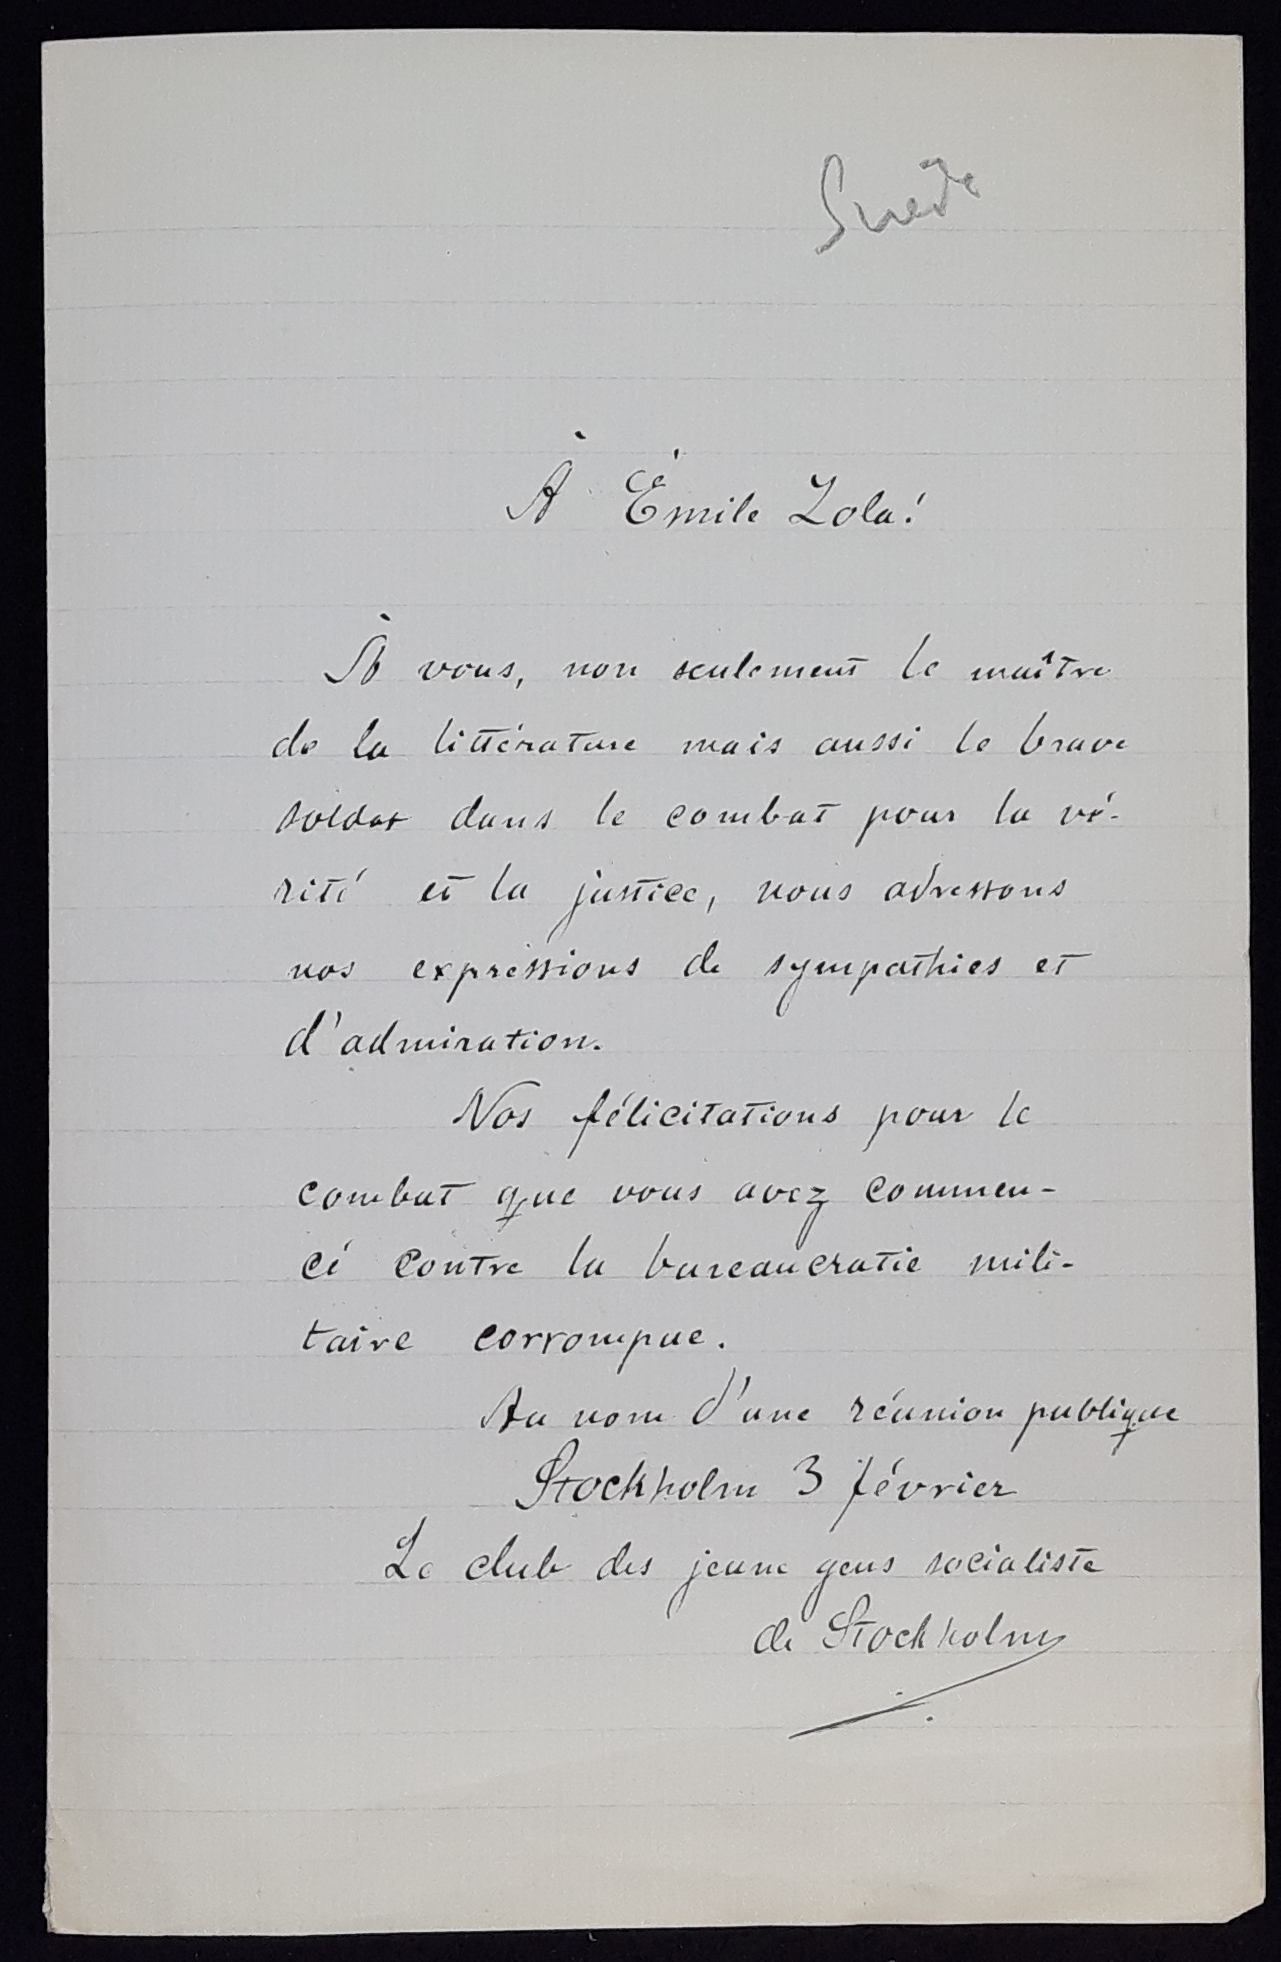 Suède
À Émile Zola!
À vous, non seulement le maître
de la littérature mais aussi le brave
soldat dans le combat pour la vé-
rité et la justice, nous adressons
nos expressions de sympathies et
d'admiration.
Nos félicitations pour le
combat que vous avez commen-
cé contre la bureaucratie mili-
taire corrompue.
Au nom d'une réunion publique
Stockholm 3 février
Le club des jeune gens socialiste
de Stockholm